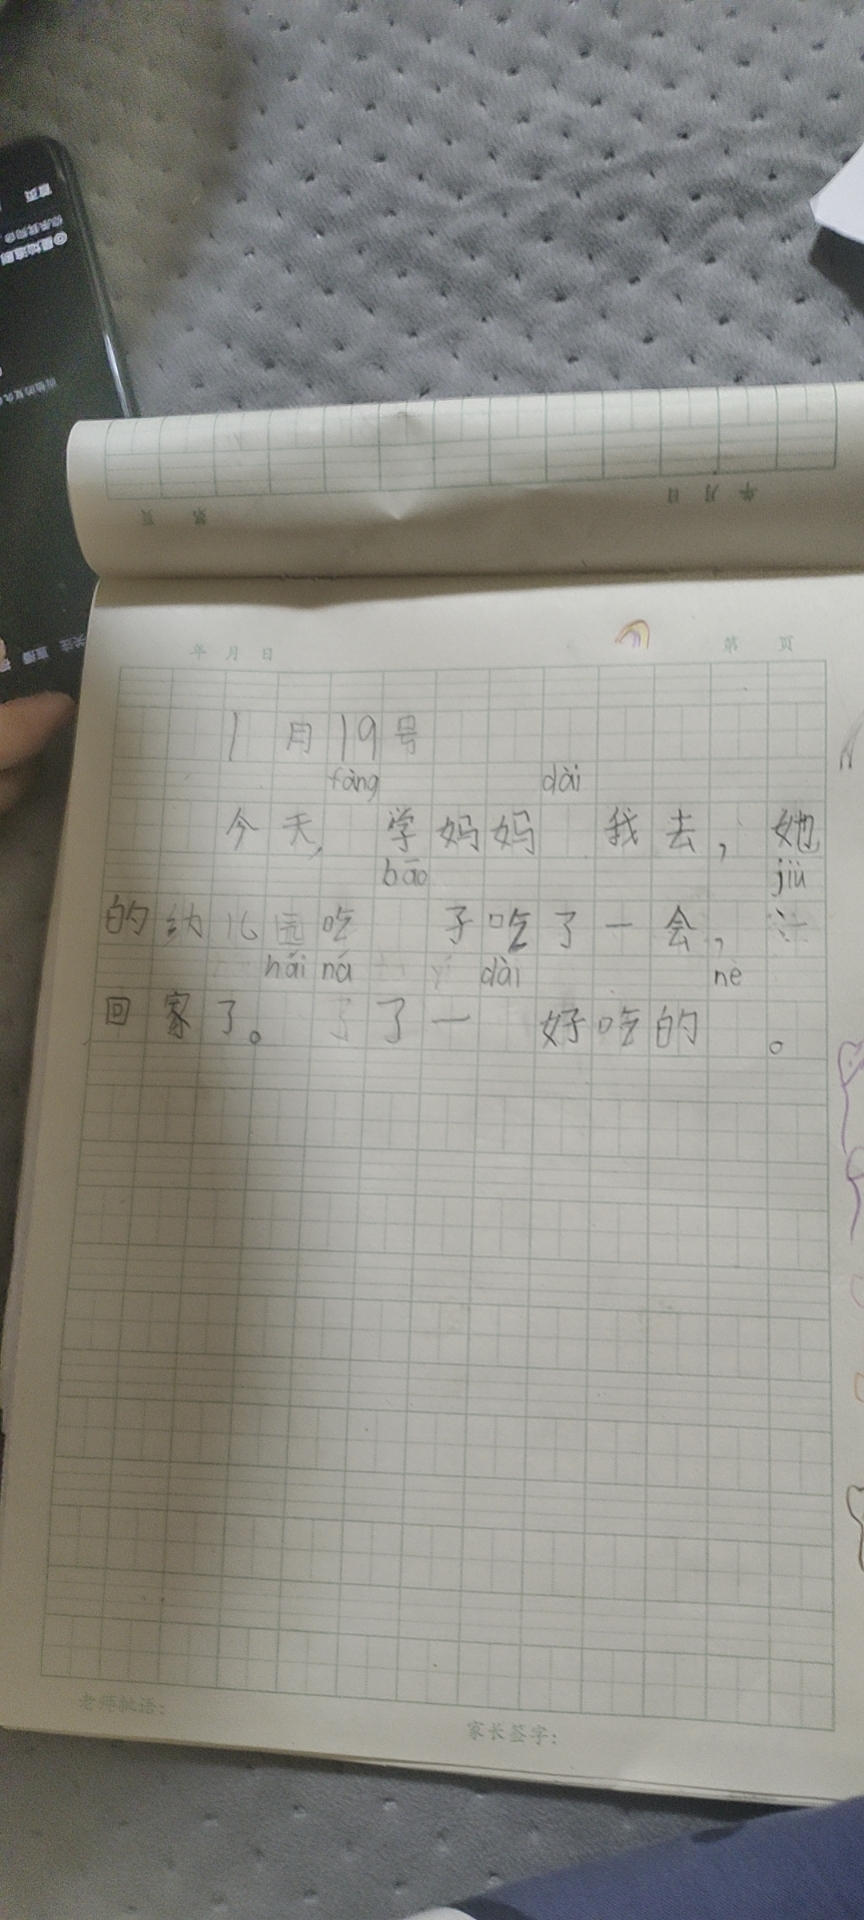 首页
年 月 日
第 页
年 月 日 第 页
1月19号
fàng dài
今天, 学妈妈 我去, 她
bāo jiù
的幼儿园吃 子吃了一会,
hái ná yí dài ne
回家了。 了了一 好吃的 。
老师批语:
家长签字: